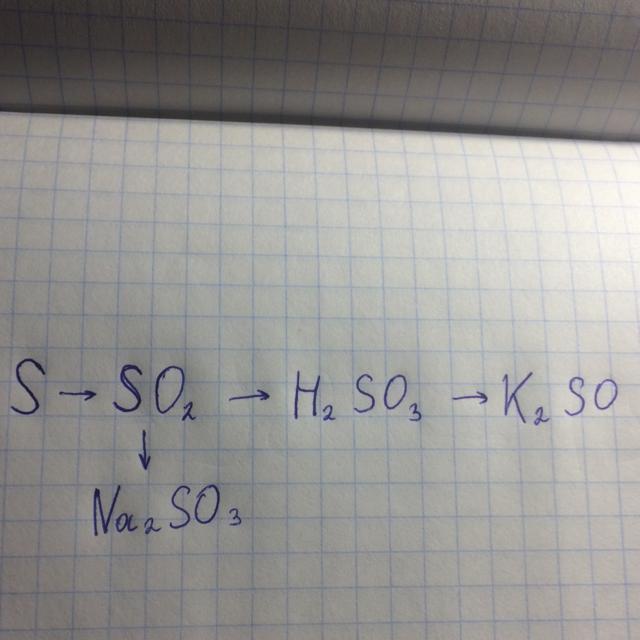 S → SO₂ → H₂SO₃ → K₂SO
↓
Na₂SO₃